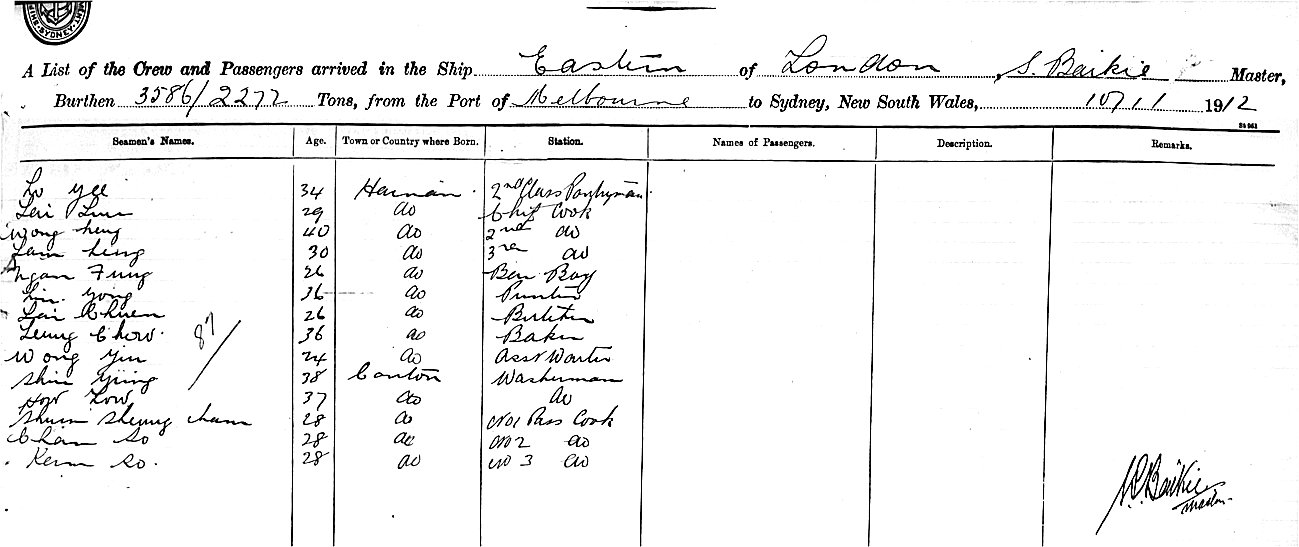 SYDNEY
A List of the Crew and Passengers arrived in the Ship Eastern of London, S. Baikie Master,
Burthen 3586/2272 Tons, from the Port of Melbourne to Sydney, New South Wales, 10/11 1912
Seamen's Names. Age. Town or Country where Born. Station. Names of Passengers. Description. Remarks.
Lo Yee 34 Hainan 2nd Class Pantryman
Lai Lun 29 do Chief Cook
Wong heng 40 do 2nd do
Lam heng 30 do 3rd do
Ngan Fung 26 do Bar Boy
Lin Yong 36 do Printer
Lai Chuen 26 do Butcher
Leung Chow 36 do Baker
Wong Yin 24 do Asst Waiter
Shin Ying 38 Canton Washerman
How Low 37 do do
Shum Sheung cham 28 do No1 Pass Cook
Chan So 28 do No 2 do
Kem So. 28 do No 3 do
87
S. Baikie
Master